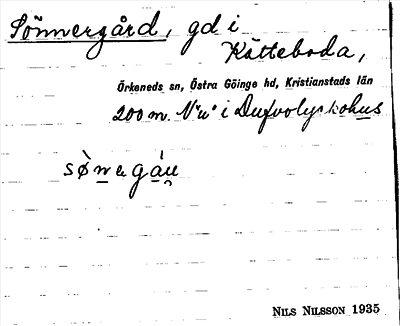 Sönnergård, gd i
Kätteboda,
Örkeneds sn, Östra Göinge hd, Kristianstads län
200 m. N"u" i
sø̀nægáu̯
NILS NILSSON 1935